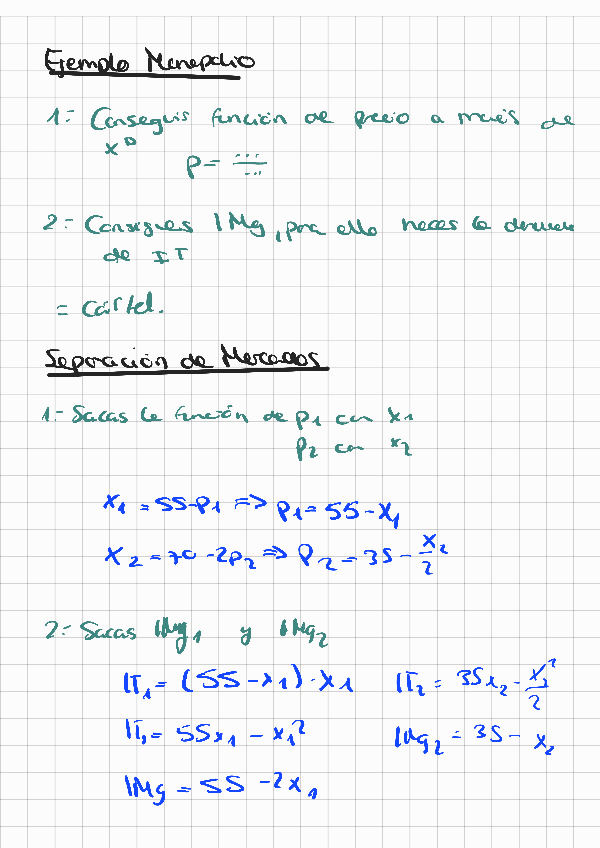 Ejemplo Monopolio
1= Conseguis función de precio a través de
x^D
p = .../...
2= Consigues IMg, para ello haces la derivada
de IT
= cártel.
Separación de Mercados
1- Sacas la función de p1 con x1
p2 con x2
x1 = 55-p1 => p1 = 55 - x1
x2 = 70 - 2p2 => p2 = 35 - x2/2
2= Sacas IMg1 y IMg2
IT1 = (55 - x1) · x1
IT2 = 35x2 - x2²/2
IT1 = 55x1 - x1²
IMg2 = 35 - x2
IMg = 55 - 2x1